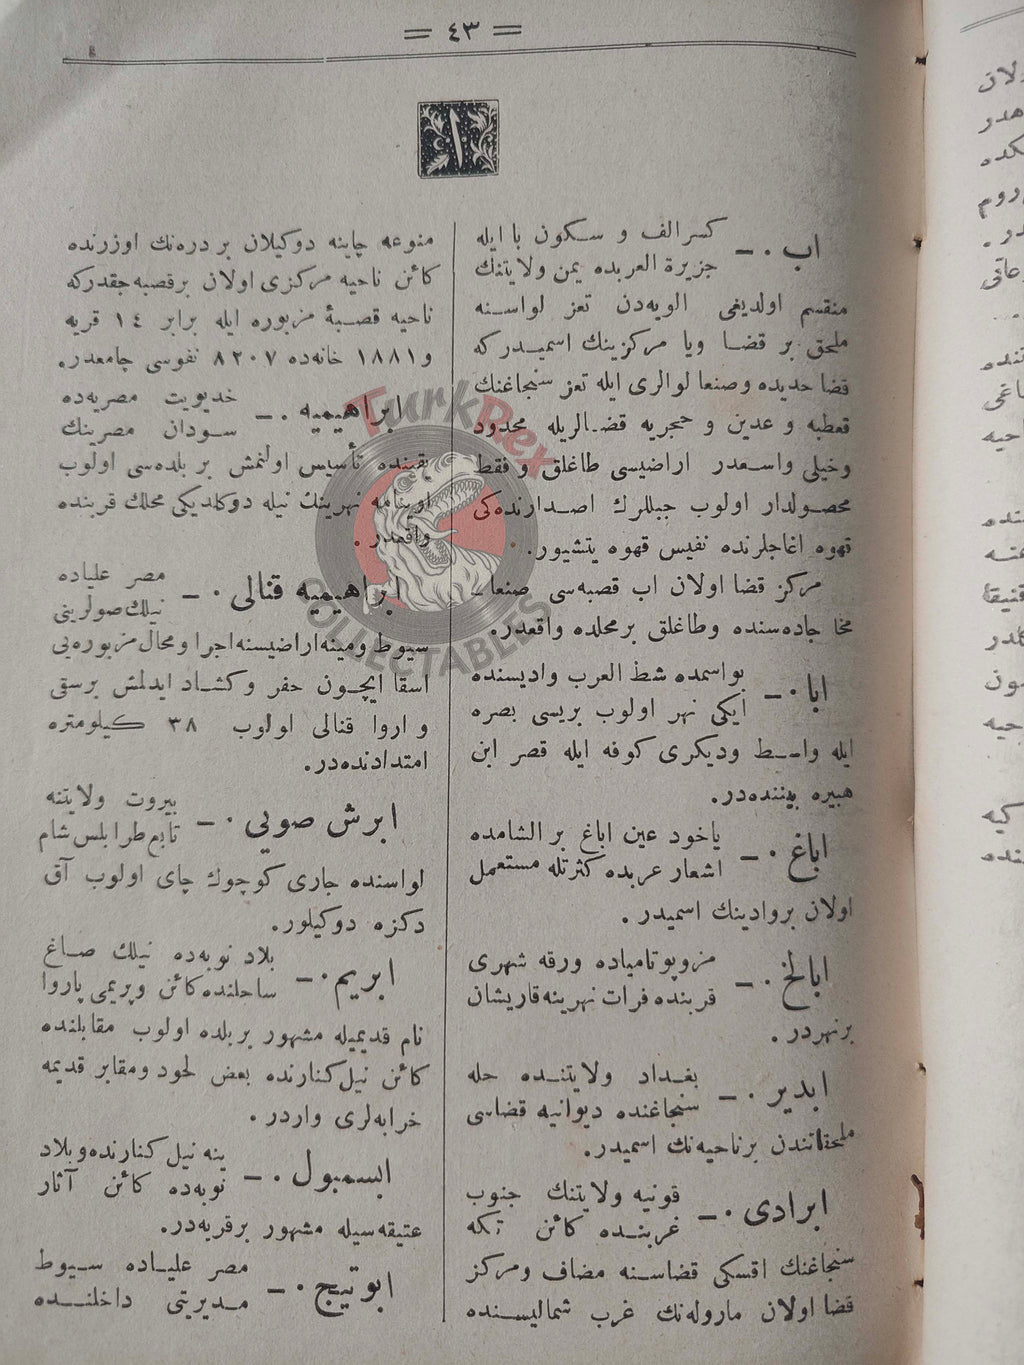 = ٤٣ =
ا
اب ٠ـ كسر الف و سكون با ايله
جزيرة العربده يمن ولايتنك
منقسم اولديغی الويه‌دن تعز لواسنه
ملحق بر قضا ويا مركزينك اسميدر كه
قضا حديده و صنعا لوالری ايله تعز سنجاغنك
قعطبه و عدين و حجريه قضالريله محدود
وخيلی واسعدر اراضيسی طاغلق و فقط
محصولدار اولوب جبللرك اصدارنده‌كی
قهوه اغاجلرنده نفيس قهوه يتشيور.
مركز قضا اولان اب قصبه‌سی صنعا ـ
مخا جاده‌سنده وطاغلق بر محلده واقعدر.
ابا ٠ـ بو اسمده شط العرب واديسنده
ايكی نهر اولوب بريسی بصره
ايله واسط وديكری كوفه ايله قصر ابن
هبيره بيننده‌در.
اباغ ٠ـ ياخود عين اباغ بر الشامده
اشعار عربده كثرتله مستعمل
اولان بر وادينك اسميدر .
ابالخ ٠ـ مزوپوتامياده ورقه شهری
قربنده فرات نهرينه قاريشان
بر نهردر .
ابدير ٠ـ بغداد ولايتنده حله
سنجاغنده ديوانيه قضاسی
ملحقاتندن بر ناحيه‌نك اسميدر.
ابرادی ٠ـ قونيه ولايتنك جنوب
غربنده كائن تكه
سنجاغنك اقسكی قضاسنه مضاف ومركز
قضا اولان مارولەنك غرب شماليسنده
منوعه چاينه دوكيلان بر دره‌نك اوزرنده
كائن ناحيه مركزی اولان بر قصبه‌جقدر كه
ناحيه قصبۀ مزبوره ايله برابر ١٤ قريه
و ١٨٨١ خانه‌ده ٨٢٠٧ نفوسی جامعدر.
ابراهيميه ٠ـ خديويت مصريه‌ده
سودان مصرينك
يقينده تأسيس اولنمش بر بلده‌سی اولوب
نهرينك نيله دوكلديكی محلك قربنده
واقعدر .
ابراهيميه قنالی ٠ـ مصر علياده
نيلك صولرينی
سيوط ومينه اراضيسنه اجرا ومحال مزبوره‌يی
اسقا ايچون حفر وكشاد ايدلمش بر سقی
و اروا قنالی اولوب ٣٨ كيلومتره
امتدادنده‌در.
ابرش صويی ٠ـ بيروت ولايتنه
تابع طرابلس شام
لواسنده جاری كوچوك چای اولوب آق
دكزه دوكيلور.
ابريم ٠ـ بلاد نوبه‌ده نيلك صاغ
ساحلنده كائن وپريمی پاروا
نام قديميله مشهور بر بلده اولوب مقابلنده
كائن نيل كنارنده بعض لحود ومقابر قديمه
خرابه‌لری واردر .
ابسمبول ٠ـ ينه نيل كنارنده وبلاد
نوبه‌ده كائن آثار
عتيقه‌سيله مشهور بر قريه‌در.
ابو تيج ٠ـ مصر علياده سيوط
مديريتی داخلنده
TurkRex
COLLECTABLES